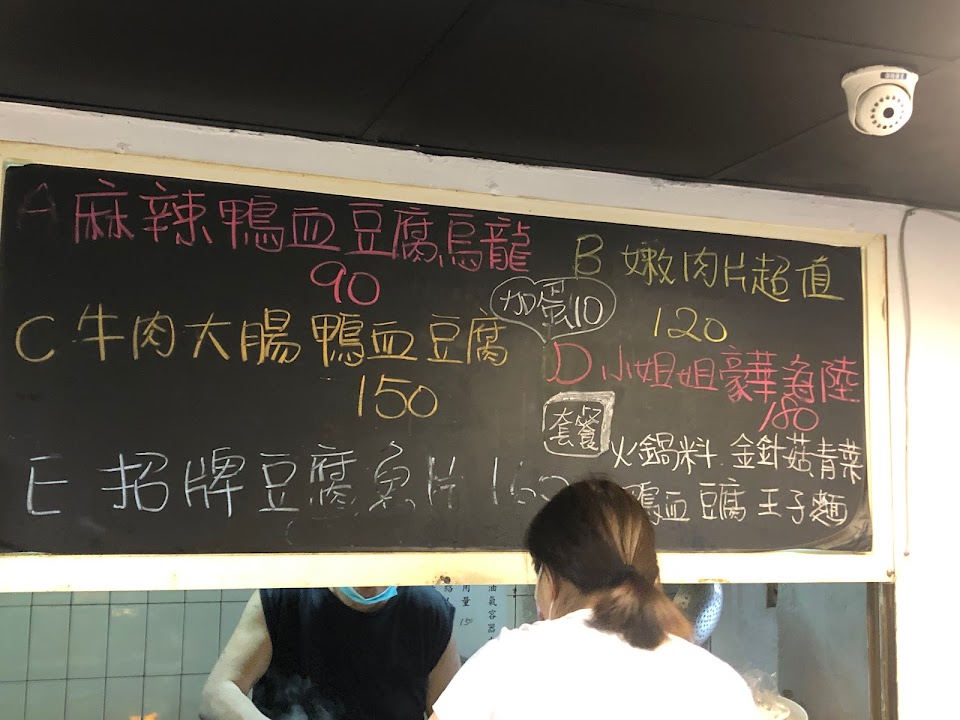 A 麻辣鴨血豆腐烏龍
90
B 嫩肉片超值
120
加蛋10
C 牛肉大腸鴨血豆腐
150
D 小姐姐豪華海陸
180
E 招牌豆腐魚片 160
套餐
火鍋料 金針菇青菜
鴨血 豆腐 王子麵
用量
150
油氣容器